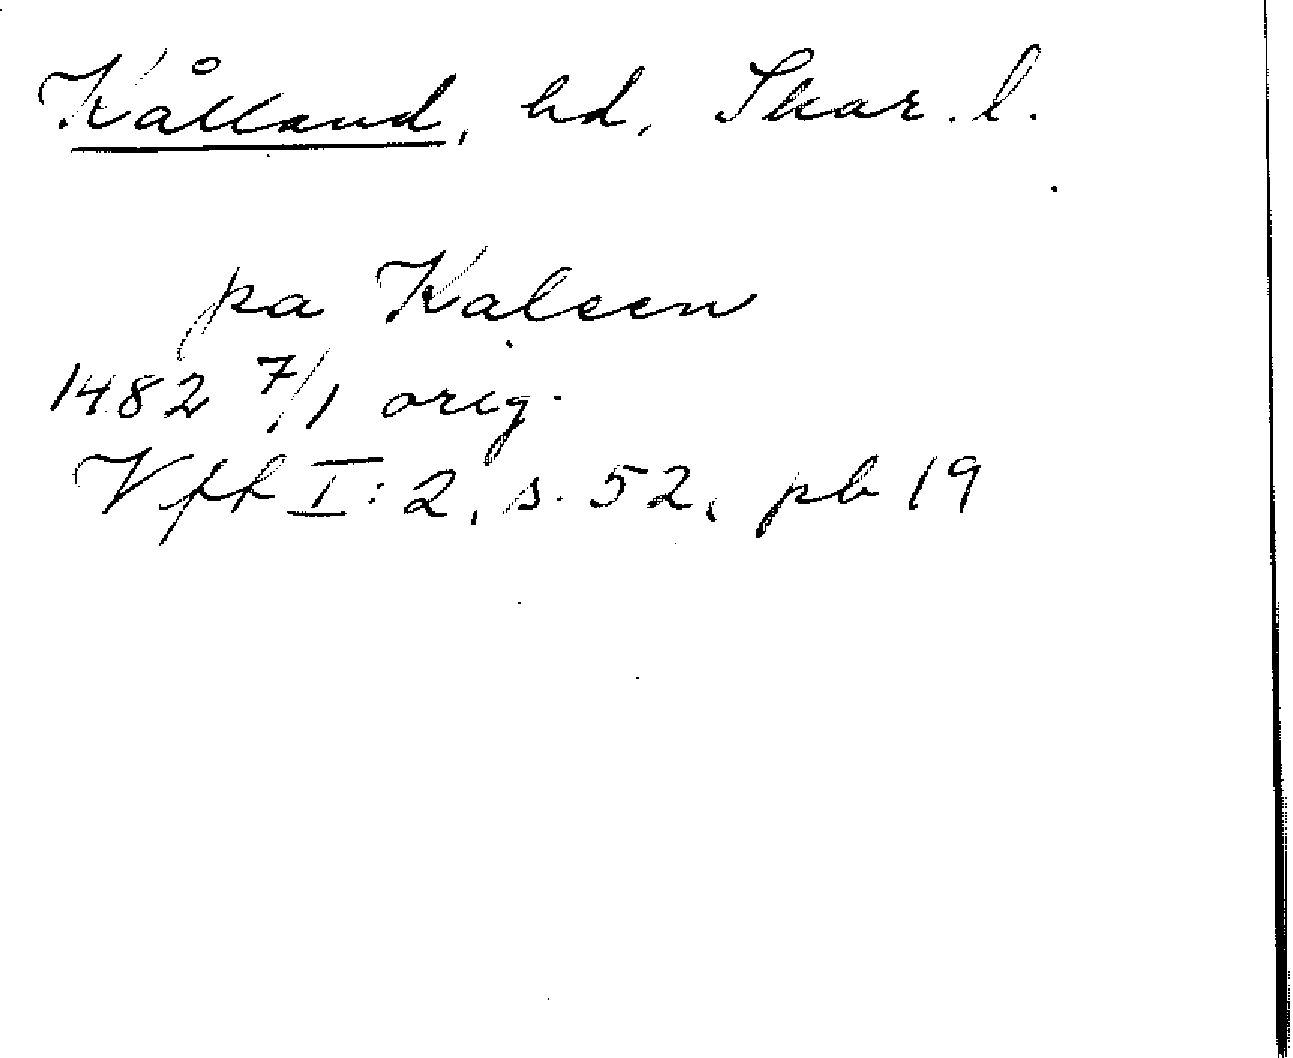 Kålland, hd, Skar. l.
pa Kaleen
1482 7/1 orig.
Vff I:2, s. 52, pb 19